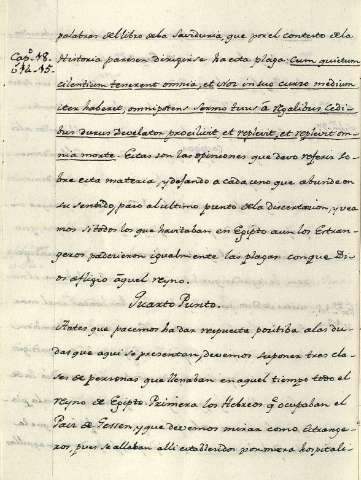 palabras del libro de la Saviduria, que por el contexto de la
Cap.º 18.
v. 14. 15.
Historia parecen dirigirse ha esta plaga: Cum quietum
cilentium tenerent omnia, et Nox in suo curso medium
iter haberet, omnipotens sermo tuus a regalibus Cedi-
bus durus Develator prociluit, et replevit, et replevit om-
nia morte. Estas son las opiniones que devo referir so-
bre esta materia, y dejando a cada uno que abunde en
su sentido, paso al ultimo punto de la disertacion, y vea-
mos si todos los que havitaban en Egipto aun los Estran-
geros padecieron igualmente las plagas con que Di-
os afligio aquel reyno.
Quarto Punto.
Antes que pacemos ha dar respuesta positiba a las du-
das que aqui se presentan, devemos suponer tres cla-
ses de personas que llenaban en aquel tiempo todo el
reyno de Egipto. Primera los Hebreos q.e ocupaban el
Pais de Gessen, y que devemos mirar como Estrange-
ros, pues se allaban alli establecidos por mera hospitali-